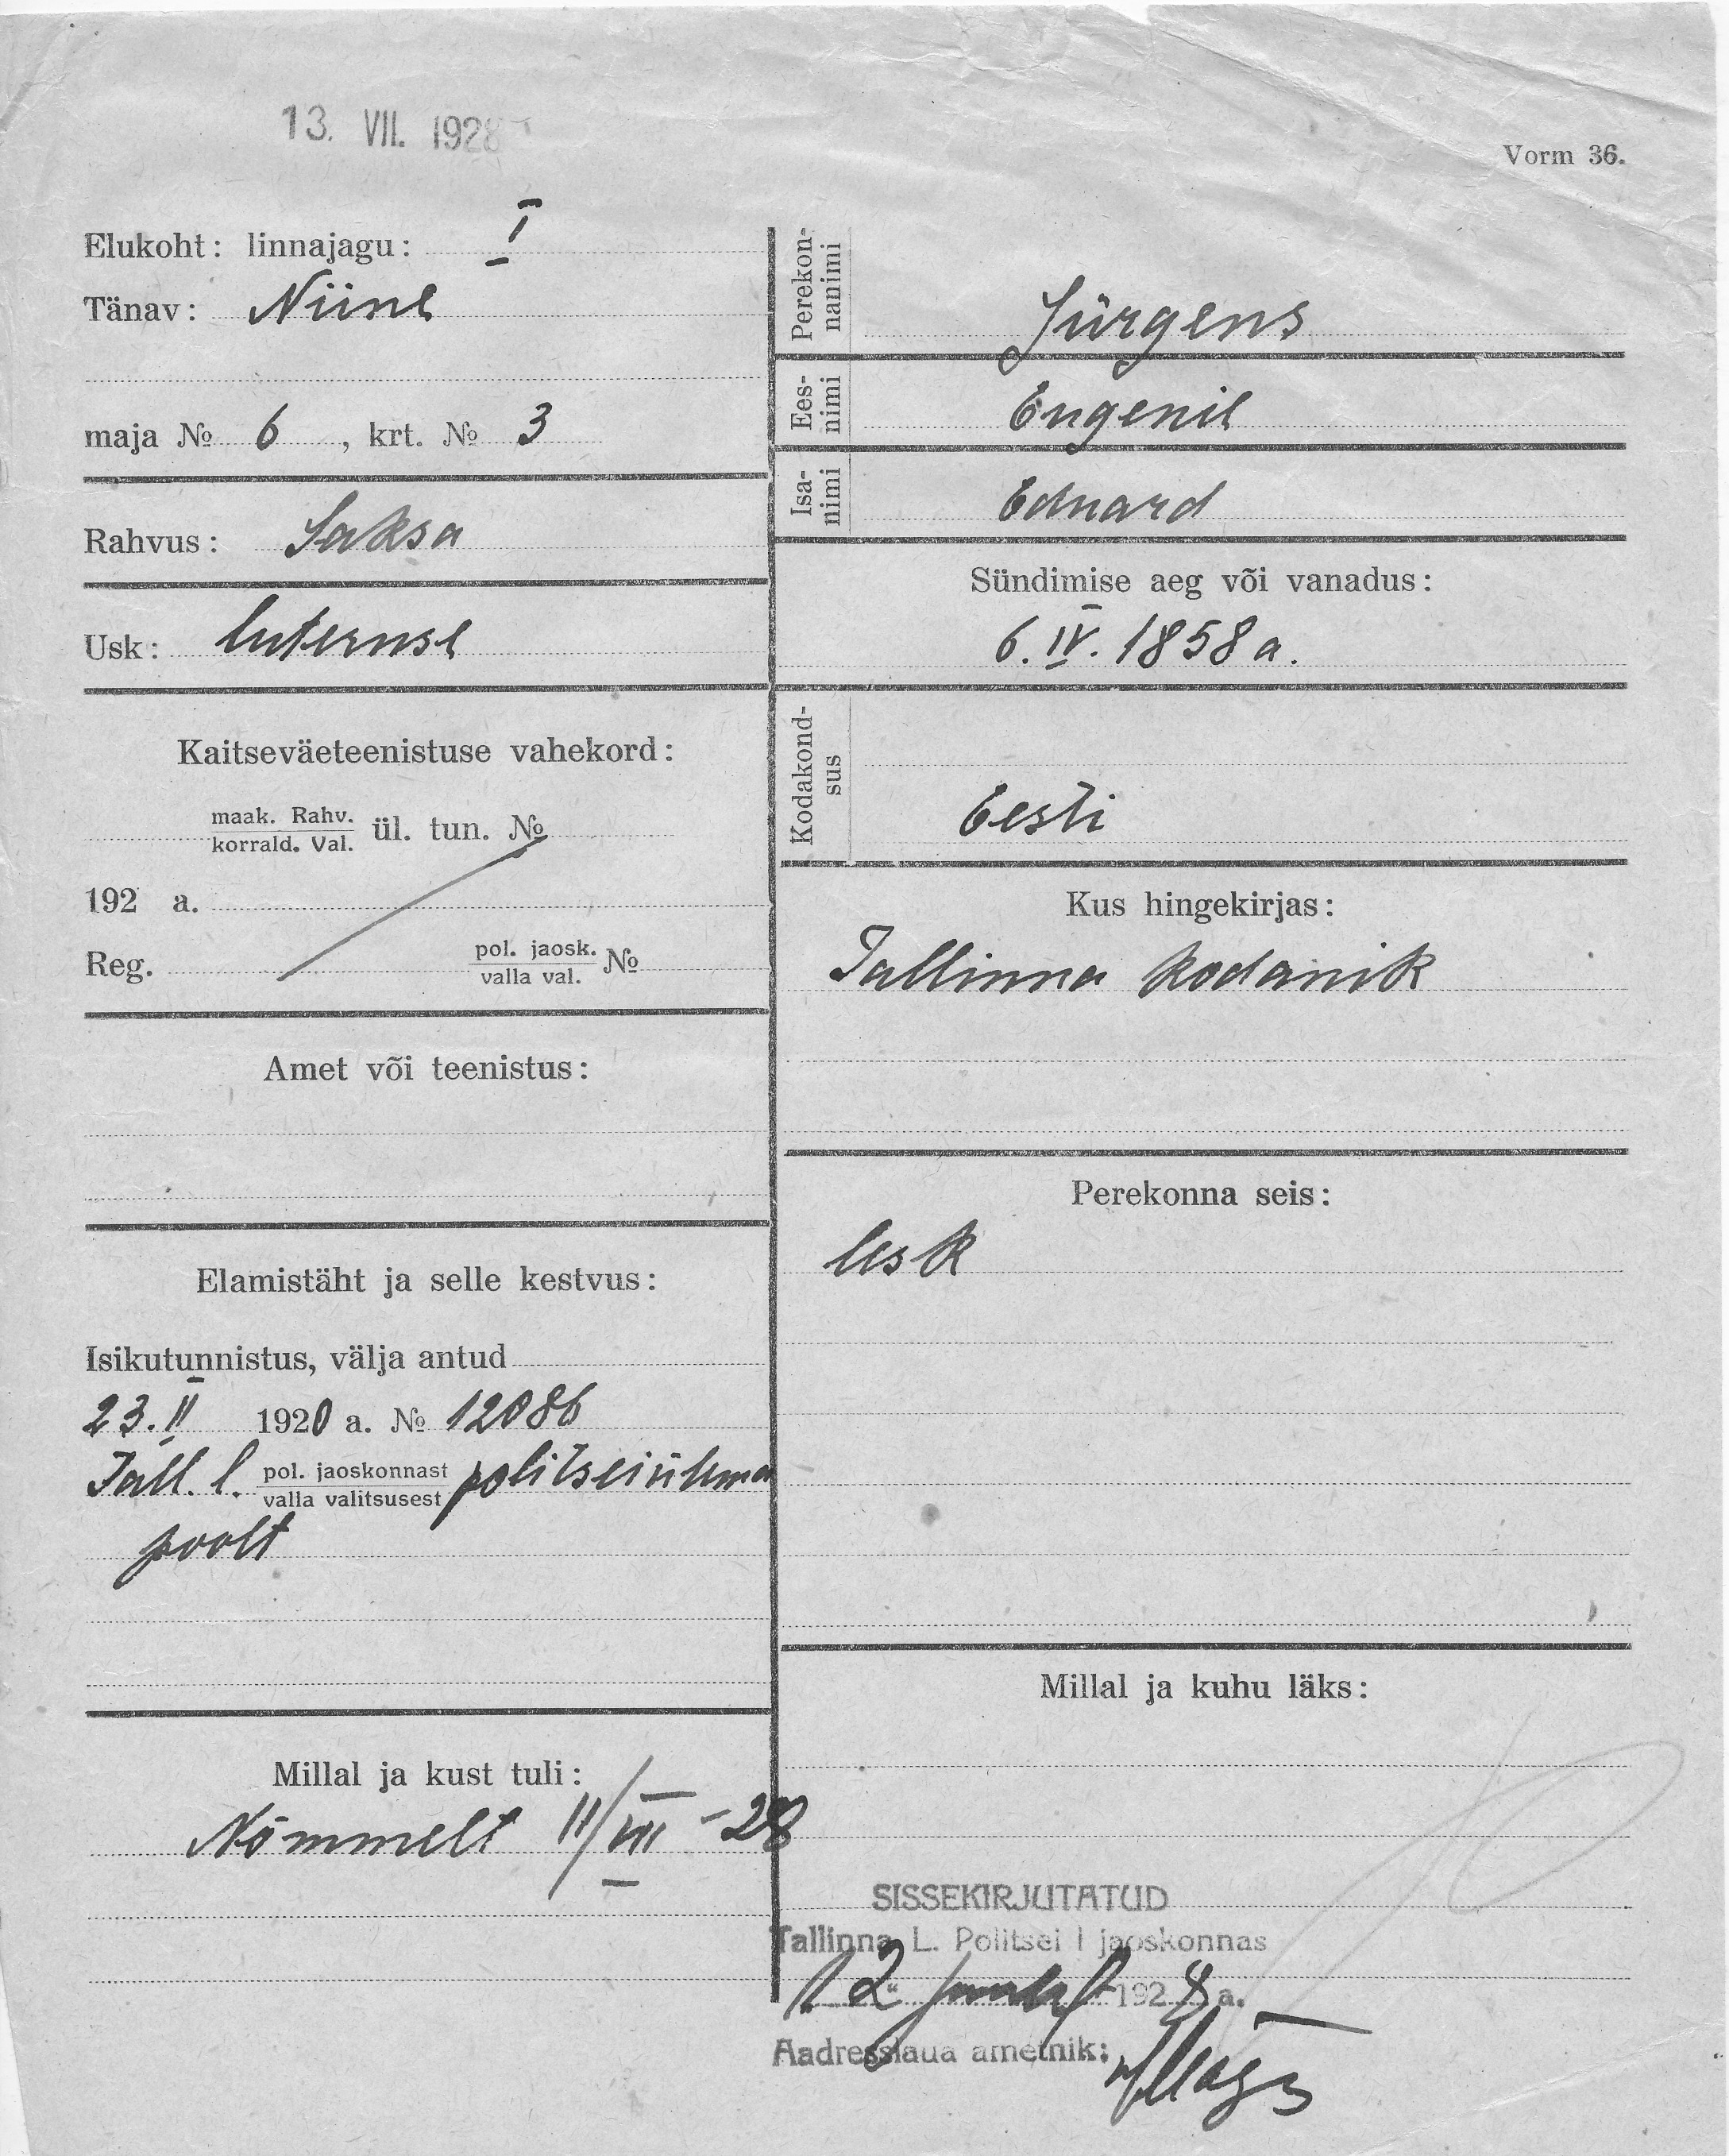 13. VII. 1928
Vorm 36.
Elukoht: linnajagu: I
Tänav: Niine
maja № 6, krt. № 3
Rahvus: Saksa
Usk: luteruse
Kaitseväeteenistuse vahekord:
maak. Rahv.
korrald. Val. ül. tun. №
192 a.
Reg. pol. jaosk.
valla val. №
Amet või teenistus:
Elamistäht ja selle kestvus:
Isikutunnistus, välja antud
23. II 1920 a. № 12086
Tall. l. pol. jaoskonnast politseiülema
valla valitsusest
poolt
Millal ja kust tuli:
Nõmmelt 11/VII -28
Perekon-
nanimi
Jürgens
Ees-
nimi
Eugenie
Isa-
nimi
Eduard
Sündimise aeg või vanadus:
6. IV. 1858 a.
Kodakond-
sus
Eesti
Kus hingekirjas:
Tallinna kodanik
Perekonna seis:
lesk
Millal ja kuhu läks:
SISSEKIRJUTATUD
Tallinna L. Politsei I jaoskonnas
12 " 1928 a.
Aadresslaua ametnik: